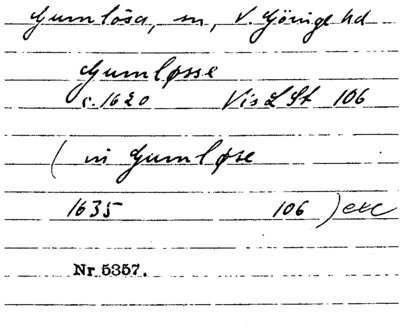 Gumlösa, sn, V. Göinge hd
Gumløsse
c. 1620 Vis L St 106
( in Gumløse
1635 106 ) etc
Nr 5357.